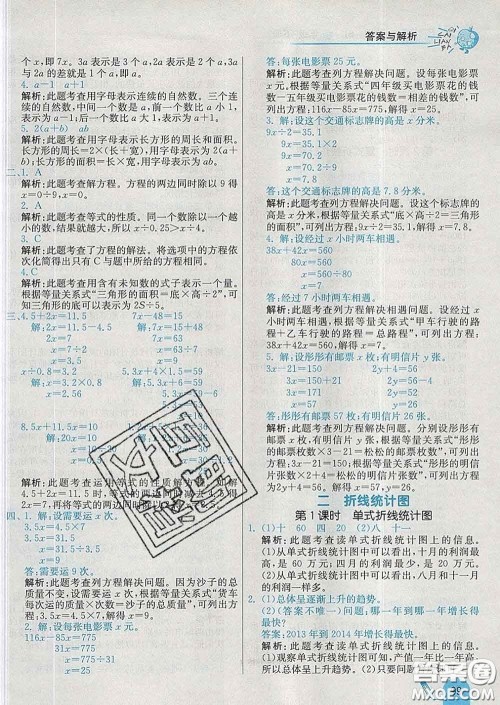 答案与解析
个x,即7x。3a表示是3个a,2a表示是2个a,3a
与2a的差就是1个a。
4. a-1 a+1
解析:此题考查用字母表示连续的自然数。三个连续
的自然数,中间一个数是a,前一个数比a小1,
表示为a-1;后一个数比a大1,表示为a+1。
5. 2(a+b) ab
解析:此题考查用字母表示长方形的周长和面积。
长方形的周长=(长+宽)×2,用字母表示为2(a+
b);长方形的面积=长×宽,用字母表示为ab。
二、1. A
解析:此题考查解方程。方程的两边同时除以9得
x=0÷9,x=0。
2. A
解析:此题考查等式的性质。同一个数除以一个越
小的数,结果就越大,所以x÷0.25>x÷4。
3. C
解析:此题考查了方程的解法。将选项中的方程依
次化简得出只有C与题中所给的方程相同。
4. C
解析:此题考查用含有未知数的式子表示一个量。
根据等量关系式“三角形的面积=底×高÷2”,可
知三角形的面积可以表示为2S÷5。
三、4.5+2x=11.5 7x-15=48
解:2x=11.5-4.5 解:7x=48+15
2x=7 7x=63
x=7÷2 x=63÷7
x=3.5 x=9
x÷3.2=5.8 1.3x+4.5x=58
解:x=3.2×5.8 解:5.8x=58
x=18.56 x=58÷5.8
x=10
8.5x+11.5x=10
解:20x=10
解析:此题考查运用等式的性质解方程。
4.5+2x=11.5
四、1. 解:设需要运x次。
3.5x=4.5×7
3.5x=31.5
x=9
答:需要运9次。
解析:此题考查列方程解决问题。因为沙子的总
质量不变,设需要运x次,根据等量关系式“货车
每次运的质量×次数=沙子的总质量”,可列出方
程:3.5x=4.5×7,x=9。
2. 解:设每张电影票x元。
116x-85x=775
31x=775
x=775÷31
x=25
答:每张电影票25元。
解析:此题考查列方程解决问题。设每张电影票
x元,根据等量关系式“四年级买电影票花的钱
数-五年级买电影票花的钱数=相差的钱数”,可
列出方程:116x-85x=775,x=25。
3. 解:设这个交通标志牌的高是x分米。
9x÷2=35.1
9x=35.1×2
9x=70.2
x=7.8
答:这个交通标志牌的高是7.8分米。
解析:此题考查列方程解决问题。设标志牌的高
是x分米,根据等量关系式“底×高÷2=三角形
的面积”,可列出方程:9x÷2=35.1,x=7.8。
4. 解:设经过x小时两车相遇。
38x+42x=560
80x=560
x=560÷80
x=7
答:经过7小时两车相遇。
解析:此题考查列方程解决相遇问题。设经过x
小时两车相遇,根据等量关系式“甲车行驶的
路程+乙车行驶的路程=总路程”,可列出方程:
38x+42x=560,x=7。
5. 解:设形形有邮票x枚,有明信片y张。
3x-21=150 2y+46=98
3x=171 2y=52
x=57 y=26
答:形形有邮票57枚,有明信片26张。
解析:此题考查列方程解决问题。分别设形形有
邮票x枚,有明信片y张,根据等量关系式“形形的
邮票枚数×3-21=松松的邮票枚数”“形形的明
信片张数×2+46=松松的明信片张数”,可列出
方程:3x-21=150,x=57;2y+46=98,y=26。
二 折线统计图
第1课时 单式折线统计图
1. (1)十 60 四 20 (2)八 十一
解析:此题考查读单式折线统计图上的信息。
(1)从单式折线统计图中可以看出,十月的利润最
高,是60万元;四月的利润最低,是20万元。
(2)从单式折线统计图中可以看出,八月和十一月
的利润一样多。
2. (1)总体呈逐渐上升的趋势。
(2)(答案不唯一)问题:哪一年到哪一年增长得
最快?
答案:2013年到2014年增长得最快。
解析:此题考查读单式折线统计图上的信息。
(1)观察单式折线统计图可知,产值一年比一年高,
所以总体呈上升趋势。
作业精灵